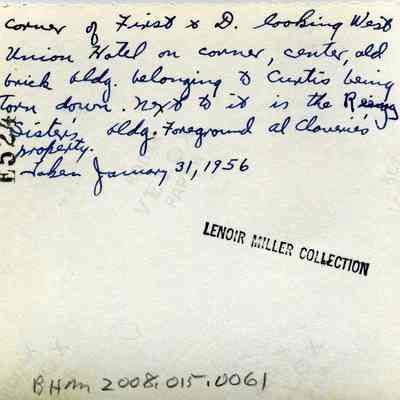 corner of First & D. looking West
Union Hotel on corner, center, old
brick bldg. belonging to Curtis being
torn down. Next to it is the Rising
Sister's bldg. Foreground al Claverie's
property.
Taken January 31, 1956
E524
LENOIR MILLER COLLECTION
BHM 2008.015.0061